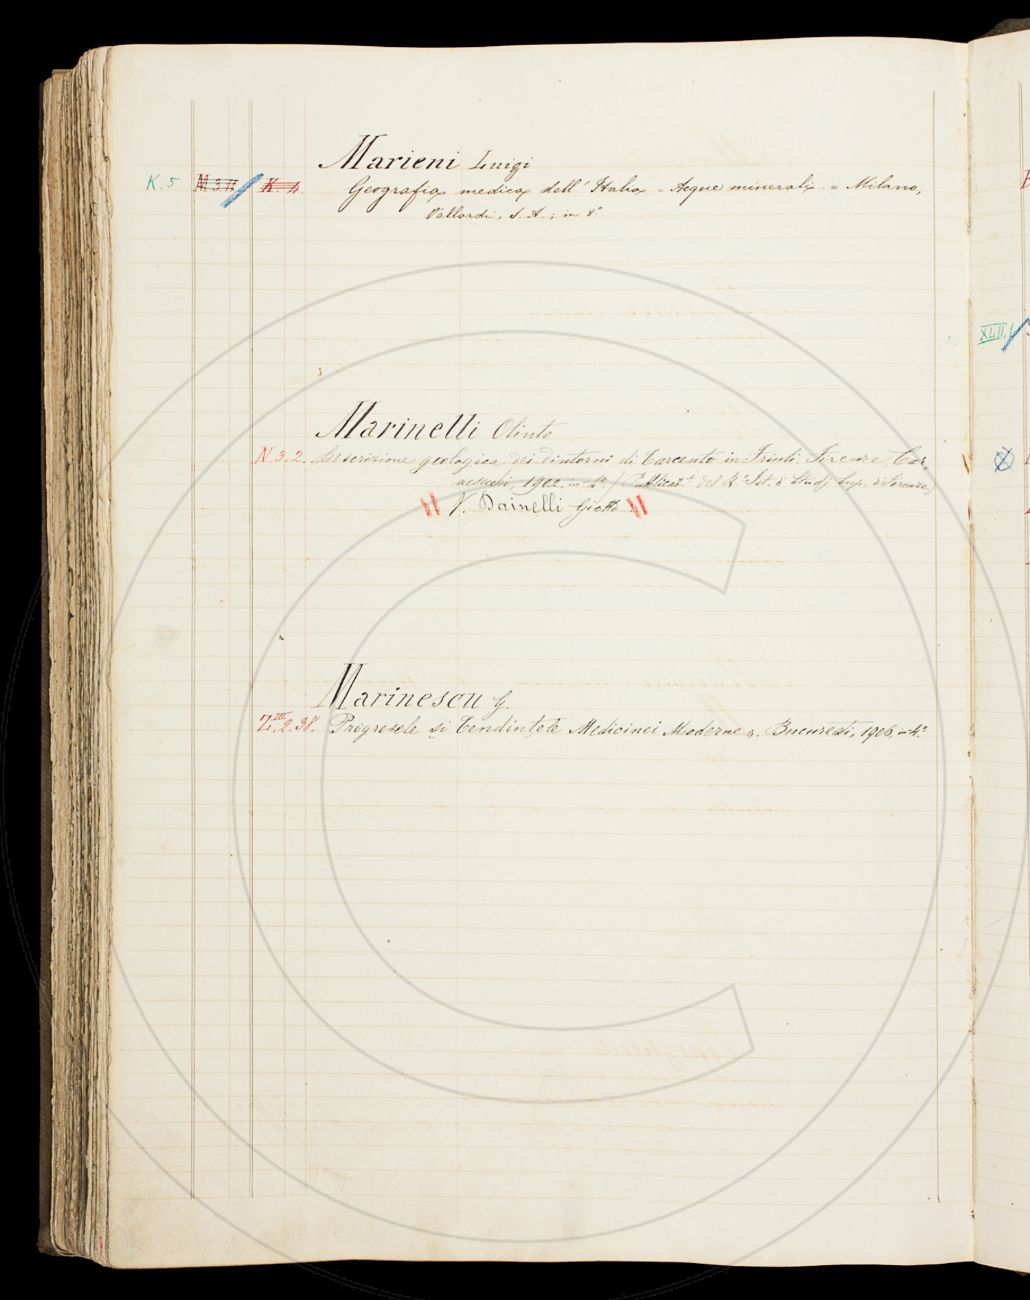 Marieni Luigi
K. 5 M.3.11 K. 4. Geografia medica dell' Italia - Acque minerali = Milano,
Vallardi, S. A.; in 8°
Marinelli Olinto
N. 3. 2. Descrizione geologica dei dintorni di Tarcento in Friuli. Firenze, Car,
nesechi, 1902, in-4°. (Pubblicat.i del R.° Ist. di Studj Sup. di Firenze)
V. Dainelli Giotto
XLII
Marinescu G.
Z.III.2.38. Progresele si tendintele Medicinei Moderne. Bucuresti, 1906, in-4°.